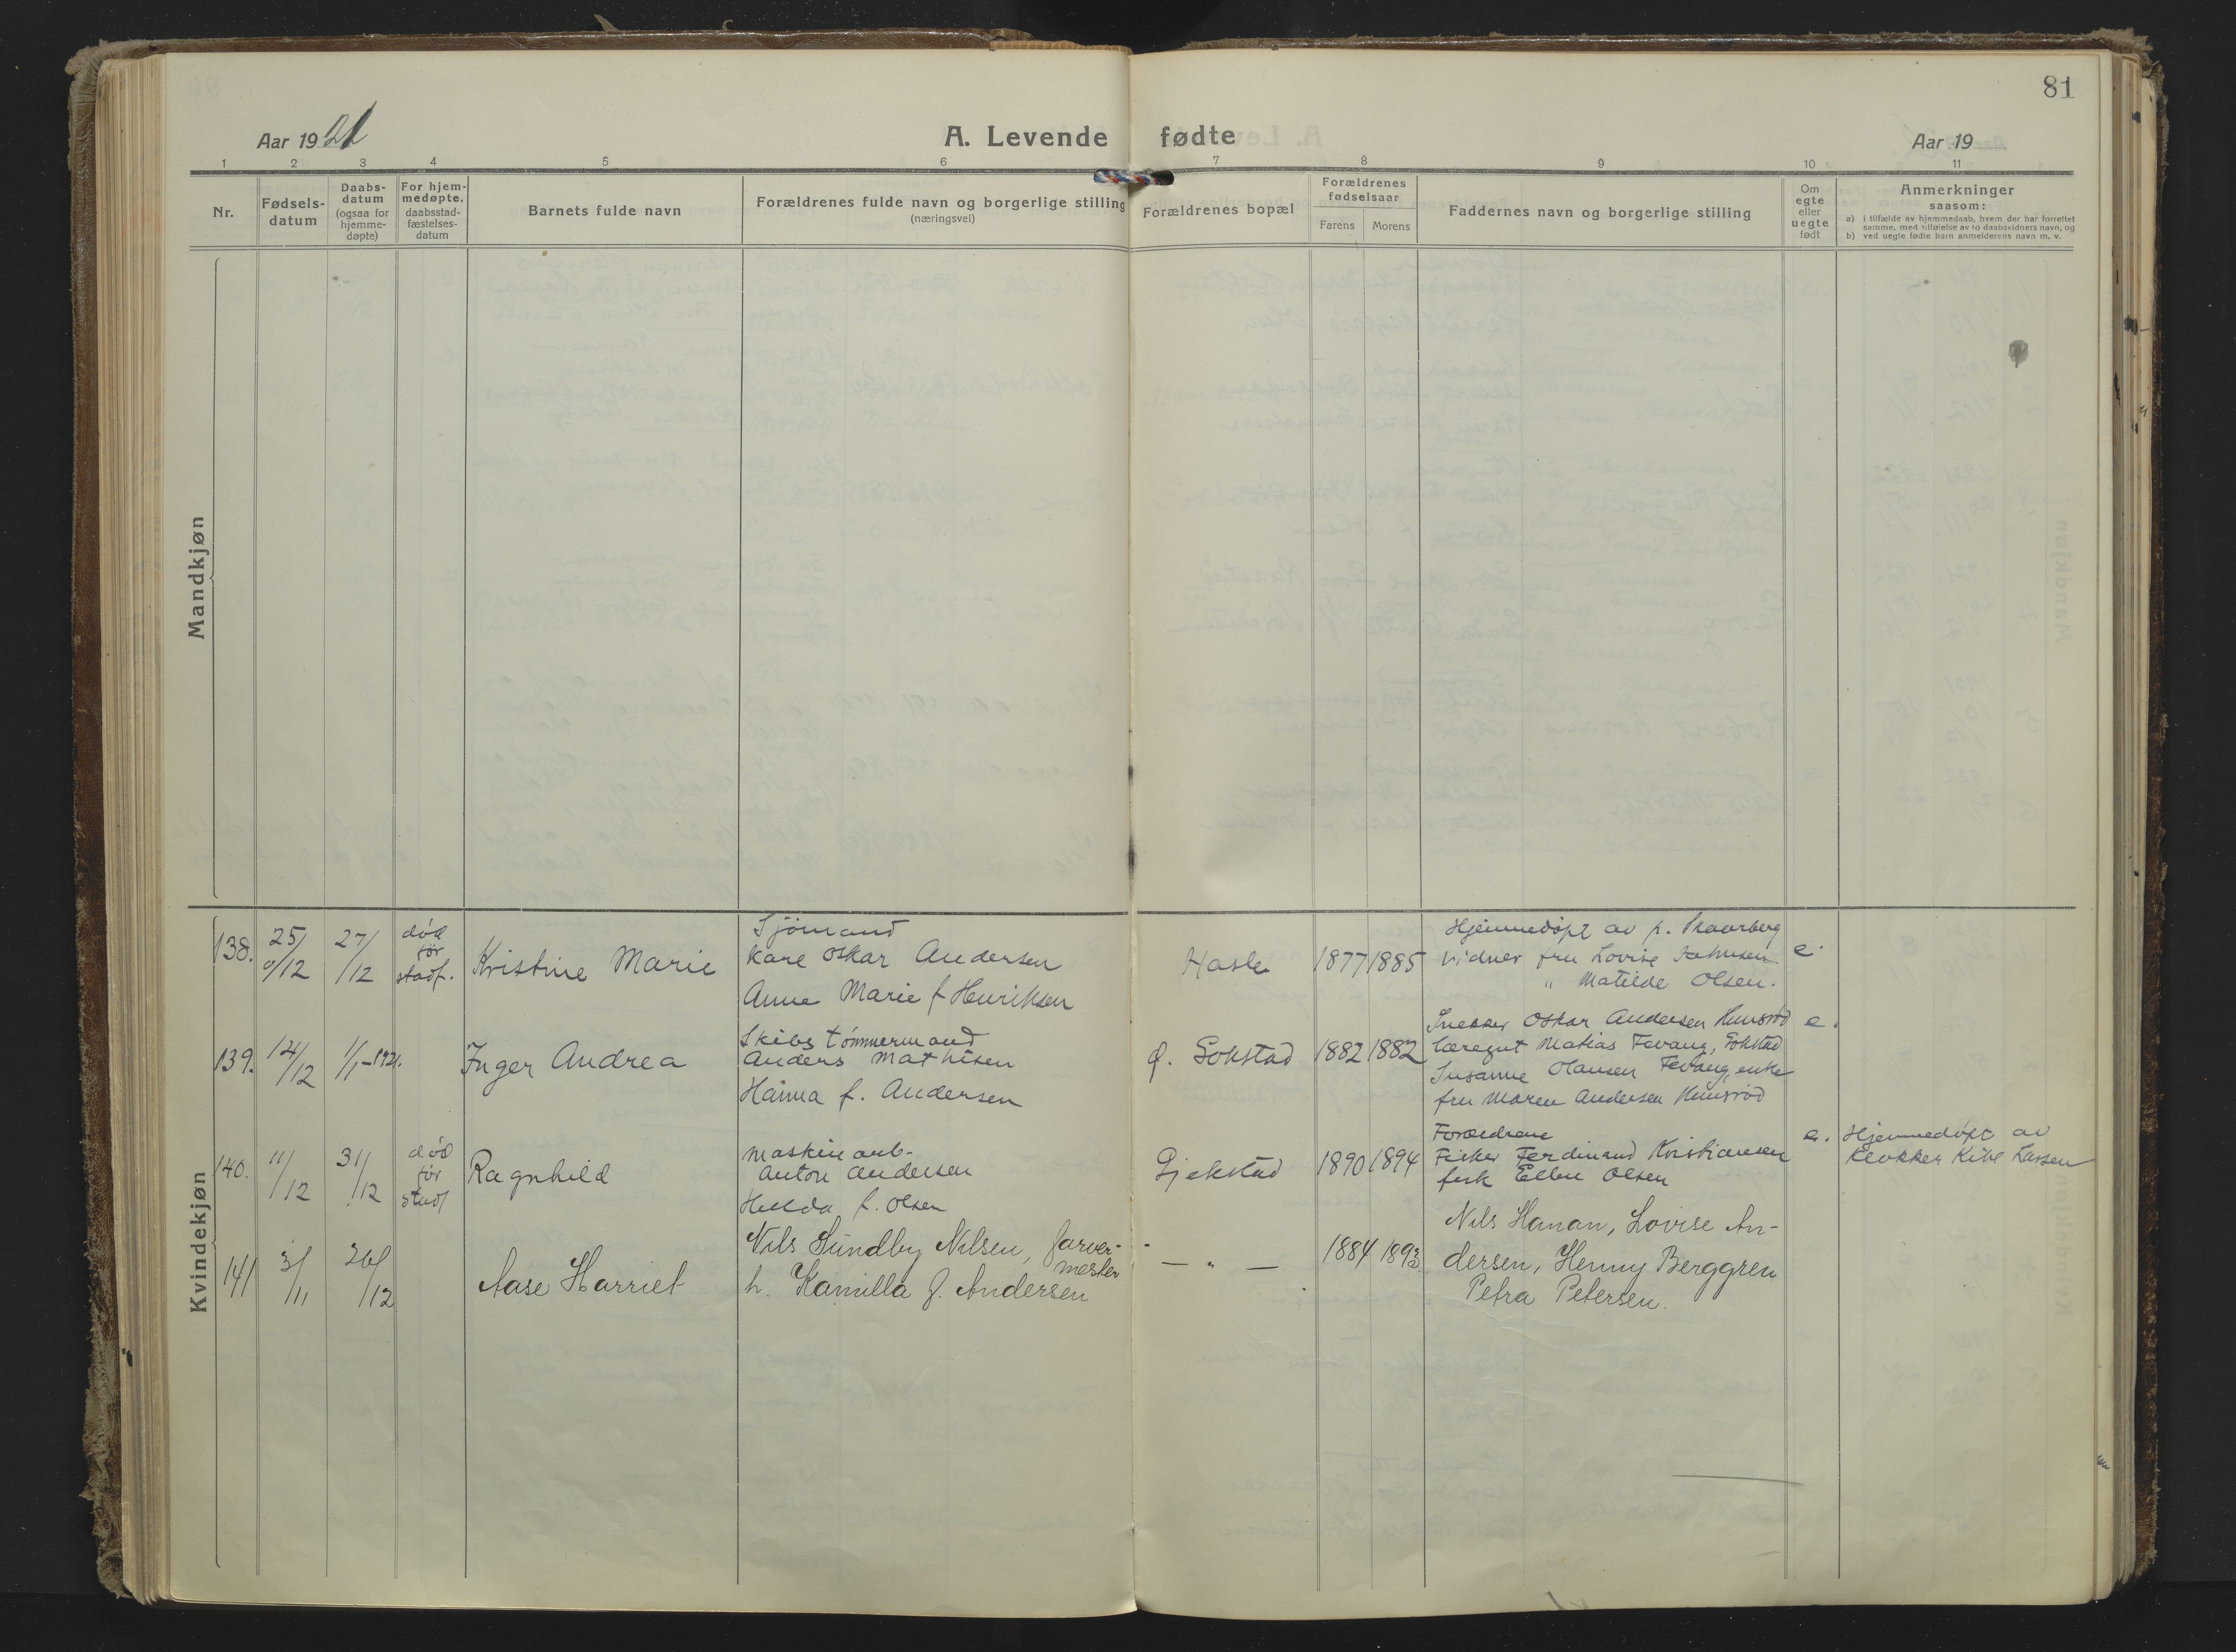 81
Aar 1921
A. Levende fødte
Aar 19
1 2 3 4 5 6 7 8 9 10 11
Nr.
Fødsels-
datum
Daabs-
datum
(ogsaa for
hjemme-
døpte)
For hjem-
medøpte,
daabsstad-
fæstelses-
datum
Barnets fulde navn
Forældrenes fulde navn og borgerlige stilling
(næringsvei)
Forældrenes bopæl
Forældrenes
fødselsaar
Farens Morens
Faddernes navn og borgerlige stilling
Om
egte
eller
uegte
født
Anmerkninger
saasom:
a) i tilfælde av hjemmedaab, hvem der har forrettet
samme, med tilføielse av to daabsvidners navn, og
b) ved uegte fødte barn anmelderens navn m. v.
Mandkjøn
Kvindekjøn
138. 25/12 27/12
død
før
stadf.
Kristine Marie
Sjömand
Kare Oskar Andersen
Anne Marie f Henriksen
Hasle
1877 1885
Hjemmedöpt av p. Skaarberg
vidner fru Lovise
" Matilde Olsen.
e.
139. 14/12 1/1-1921.
Inger Andrea
Skibstömmermand
Anders Mathisen
Hanna f. Andersen
Ø. Gokstad
1882 1882
Oskar Andersen Hunsrød
Matias Fevang, Gokstad
Susanne Olausen Fevang, enke
fru Maren Andersen Hunsrød
e.
140. 11/12 31/12
død
før
stadf
Ragnhild
Maskinarb-
Anton Andersen
Hilda f. Olsen
Gjekstad
1890 1894
Forældrene
Fisker Ferdinand Kristiansen
frk Ellen Olsen
e.
Hjemmedöpt av
klokker Kile Larsen
141 3/11 26/12
Aase Harriet
Nils Sundby Nilsen, farver-
mester
h. Kamilla f. Andersen
— " —
1884 1893.
Nils Hanan, Lovise An-
dersen, Henny Berggren
Petra Petersen.